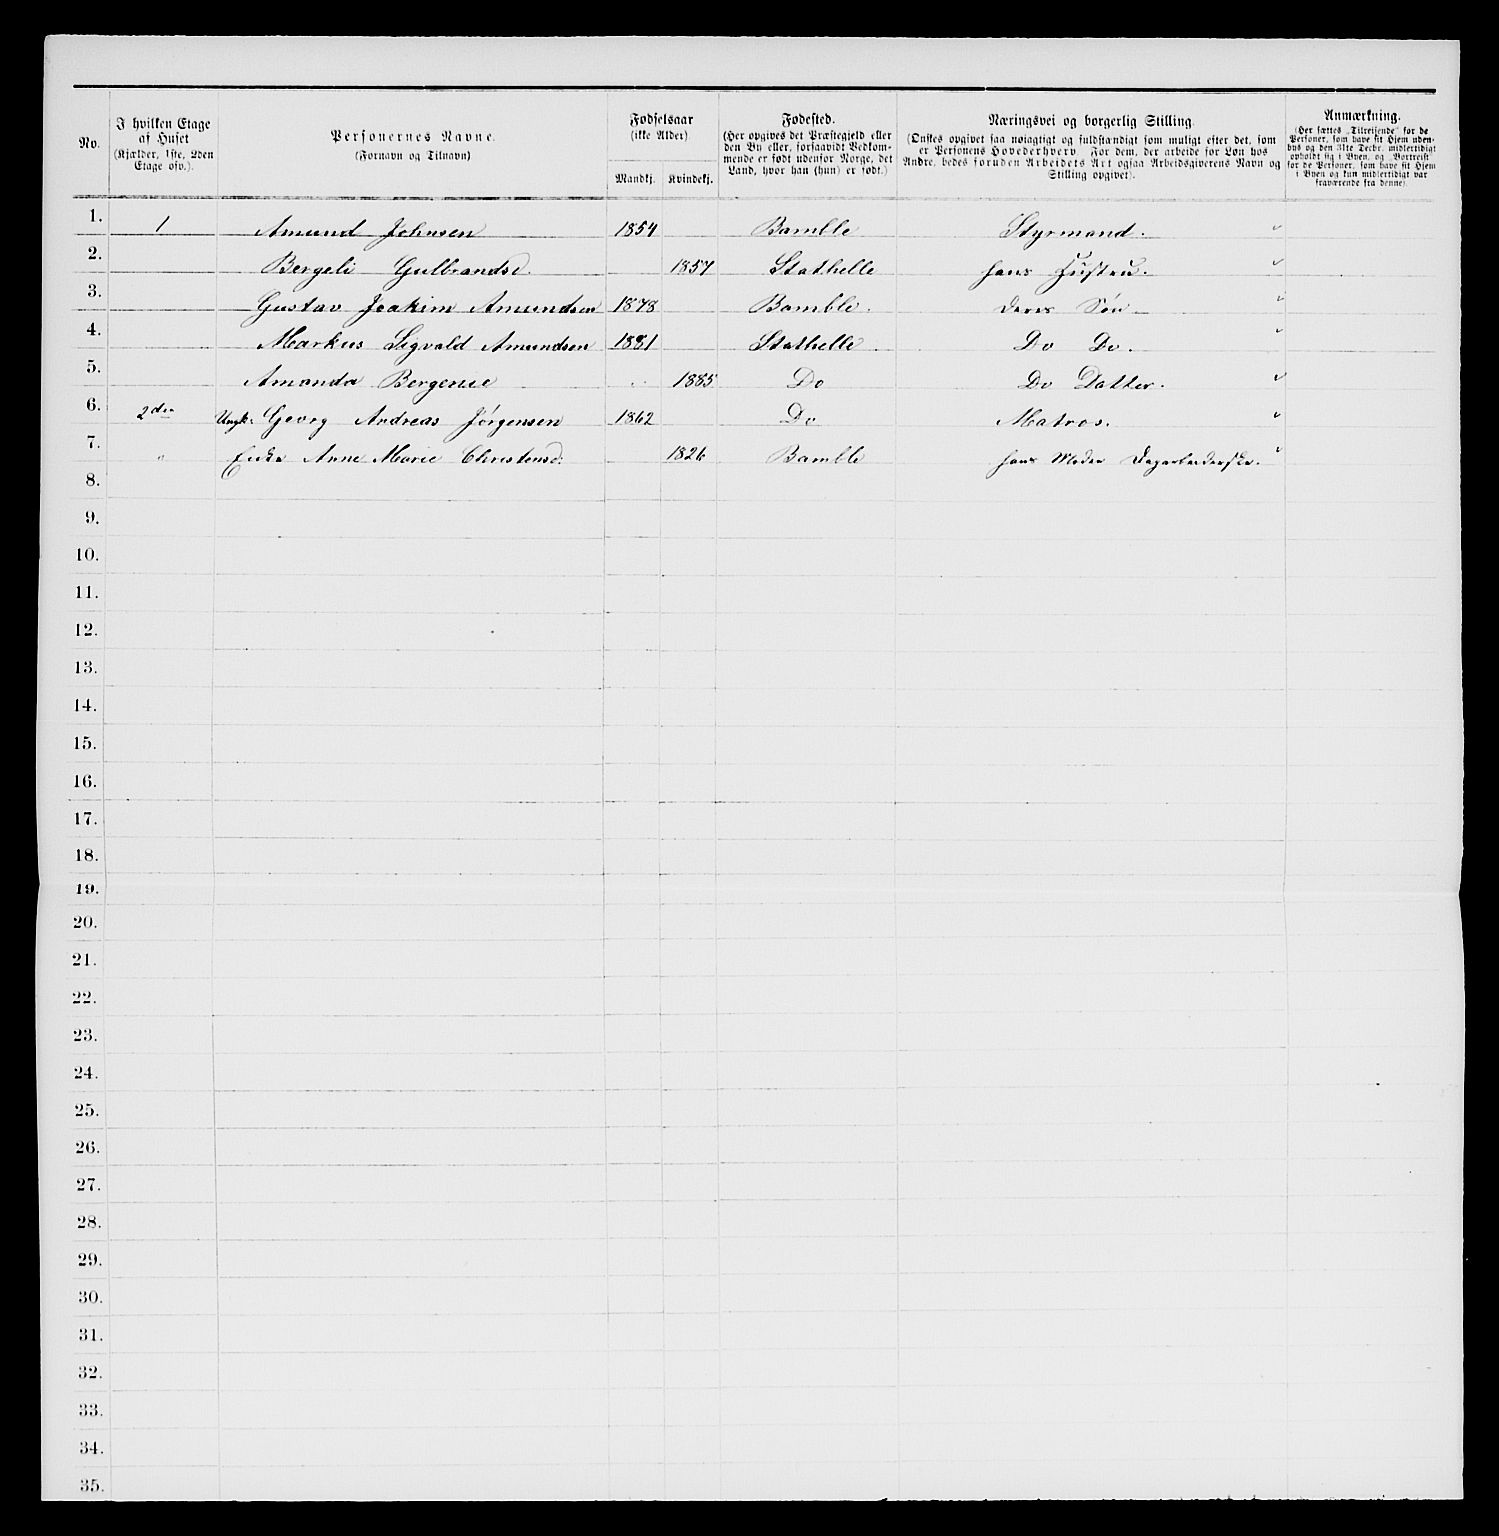 No.
I hvilken Etage
af Huset
(Kjælder, 1ste, 2den
Etage osv.).
Personernes Navne.
(Fornavn og Tilnavn)
Fødselsaar
(ikke Alder)
Mandkj. Kvindekj.
Fødested.
(Her opgives det Præstegjeld eller
den By eller, forsaavidt Vedkom-
mende er født udenfor Norge, det
Land, hvor han (hun) er født.)
Næringsvei og borgerlig Stilling
(Ønskes opgivet saa nøiagtigt og fuldstændigt som muligt efter det, som
er Personens Hovederhverv. For dem, der arbeide for Løn hos
Andre, bedes foruden Arbeidets Art ogsaa Arbeidsgiverens Navn og
Stilling opgivet).
Anmærkning.
(Her sættes „Tilreisende“ for de
Personer, som have sit Hjem uden-
bys og den 31te Decbr. midlertidigt
opholdt sig i Byen, og „Bortreist“
for de Personer, som have sit Hjem
i Byen og kun midlertidigt var
fraværende fra denne).
1. 1 Amund Johnsen 1854 Bamble Styrmand.
2. Bergeli Gulbrandsd. 1857 Stathelle hans Hustru.
3. Gustav Joakim Amundsen 1878 Bamble. deres Søn
4. Markus Sigvald Amundsen 1881 Stathelle. Do Do.
5. Amanda Bergenie 1885 Do Do Datter.
6. 2den Ungk: Georg Andreas Jørgensen 1862 Do Matros.
7. " Enke Anne Marie Christensd. 1826 Bamble hans Moder Dagarbeiderske.
8.
9.
10.
11.
12.
13.
14.
15.
16.
17.
18.
19.
20.
21.
22.
23.
24.
25.
26.
27.
28.
29.
30.
31.
32.
33.
34.
35.